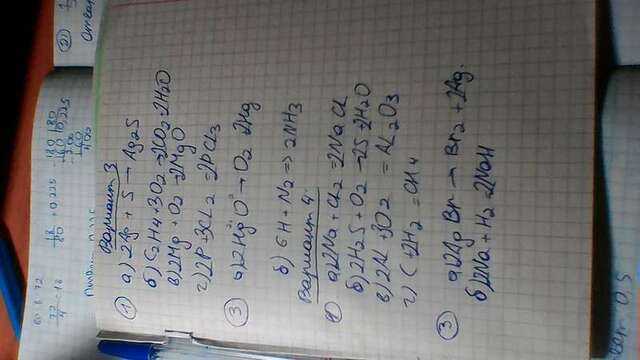 60 · 8 · 72
72/4 = 18
18/80 = 0,225
180 | 80
160 | 0,225
200
160
400
2)
Ответ
Вариант 3
1 а) 2Ag + S → Ag2S
б) C2H4 + 3O2 → 2CO2 + 2H2O
в) 2Mg + O2 → 2MgO
г) 2P + 3CL2 = 2PCL3
3 а) 2HgO → O2 2Hg
б) 6H + N2 => 2NH3
Вариант 4
1 а) 2Na + CL2 = 2NaCL
б) 2H2S + O2 → 2S + 2H2O
в) 2AL + 3O2 = AL2O3
г) C + 2H2 = CH4
3 а) 2AgBr → Br2 + 2Ag.
б) 2Na + H2 = 2NaH
0,5